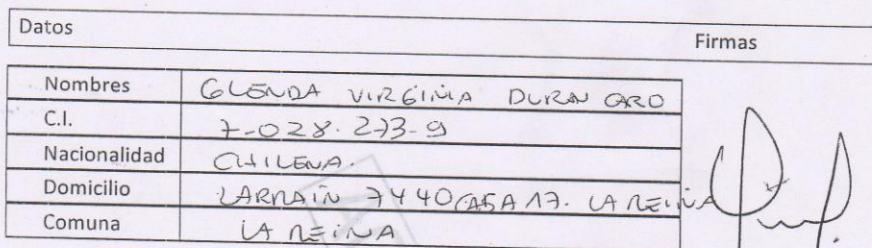 Datos Firmas
Nombres GLENDA VIRGINIA DURAN CARO
C.I. 7-028.273-9
Nacionalidad CHILENA.
Domicilio LARRAÍN 7440 CASA 17. LA REINA
Comuna LA REINA